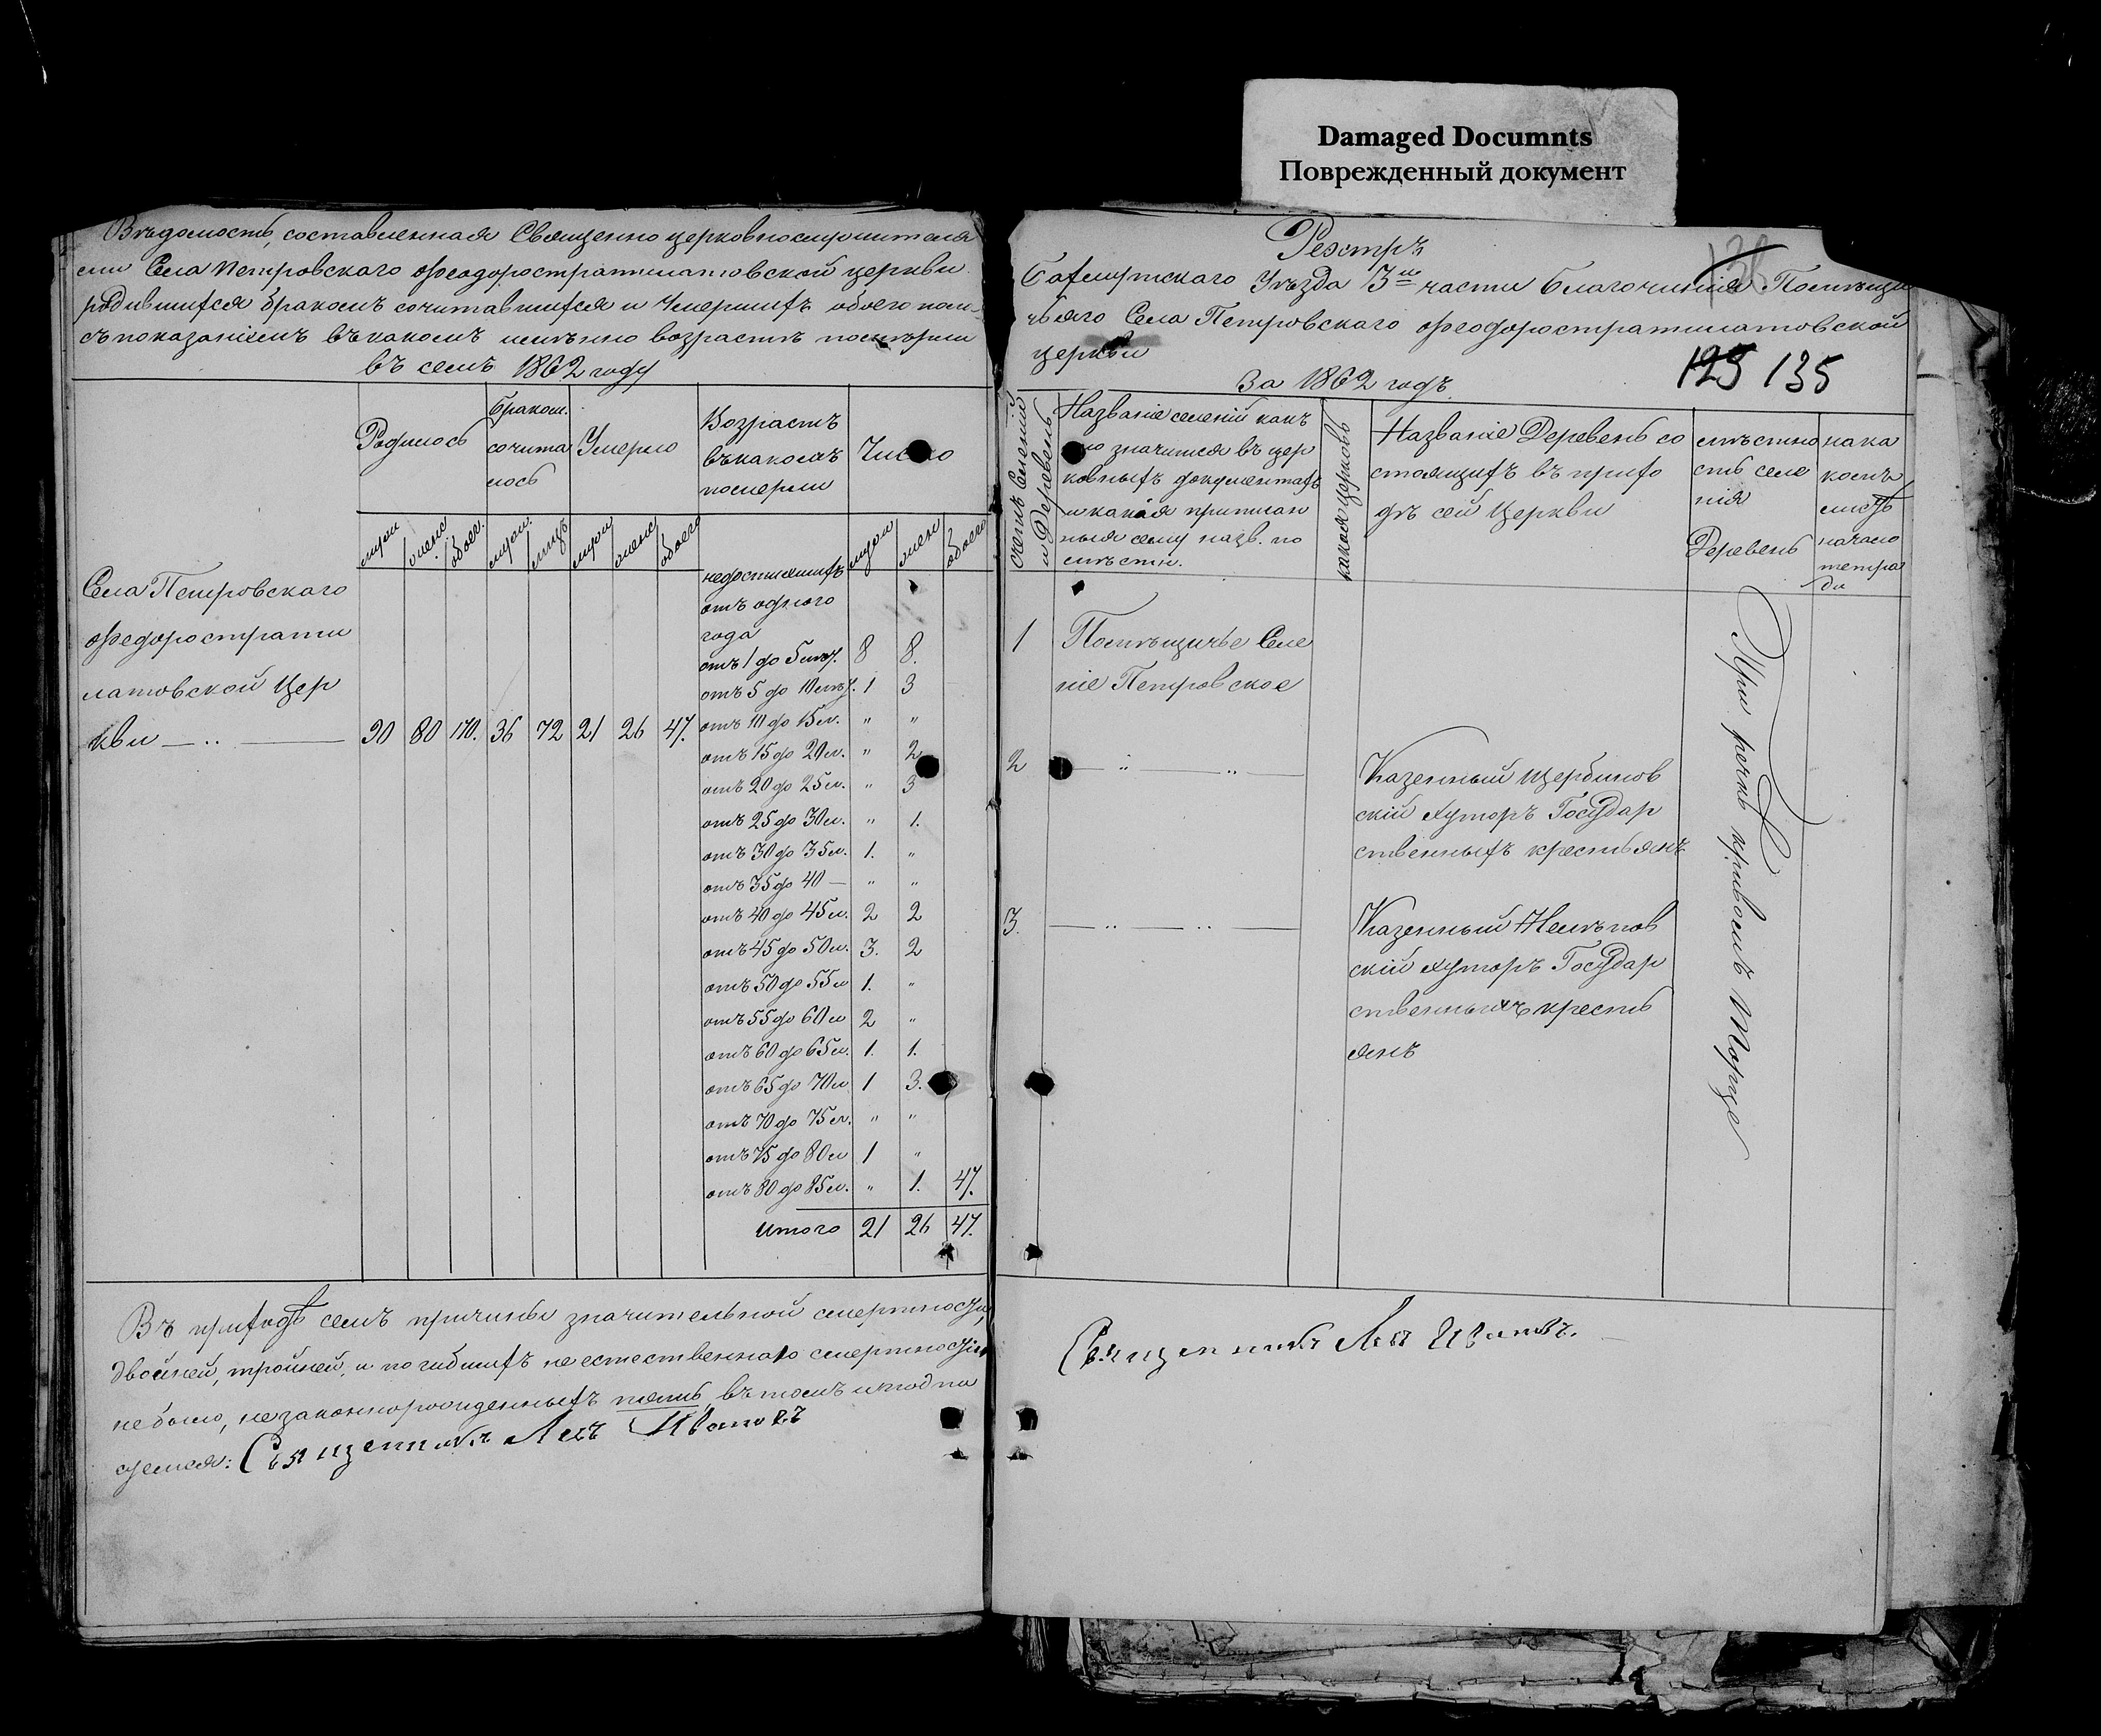 Damaged Documnts
Поврежденный документ
Вѣдомость, составленная Священно церковнослужителя
ми Села Петровскаго Ѳеодоростратилатовской церкви
родившихся бракомъ сочитавшихся и Умершихъ обоего пола
съ показаніемъ въ какомъ именно возрастѣ померли
въ семъ 1862 году
Родилось
Браком.
сочита
лось
Умерло
Возрастъ
въ какомъ
померли
Число
муж
женс.
обоег.
муж.
лицъ
муж
женс
обоего
муж
жен
обоего
Села Петровскаго
Ѳедорострати
латовской Цер
кви — „ —
90 80 170. 36 72 21 26 47.
недостигшихъ
отъ одного
года
отъ 1 до 5 лѣт. 8 8.
отъ 5 до 10 лѣт. 1 3
отъ 10 до 15 л. „ „
отъ 15 до 20 л. „ 2
отъ 20 до 25 л. „ 3
отъ 25 до 30 л. „ 1.
отъ 30 до 35 л. 1. „
отъ 35 до 40 — „ „
отъ 40 до 45 л. 2 2
отъ 45 до 50 л. 3. 2
отъ 50 до 55 л 1. „
отъ 55 до 60 л 2 „
отъ 60 до 65 л. 1. 1.
отъ 65 до 70 л 1 3.
отъ 70 до 75 л. „ „
отъ 75 до 80 л 1 „
отъ 80 до 85 л. „ 1. 47.
Итого 21 26 47.
Въ приходѣ семъ причины значительной смертности,
двойней, тройней, и погибшихъ не естественною смертностію
не было, незаконнорожденныхъ пять, въ томъ и подпи
суемся: Священникъ Левъ Ивановъ
Реэстръ
Бахмутскаго Уѣзда 3й части Благочинія Помѣщи
чьяго Села Петровскаго Ѳеодоростратилатовской
церкви
За 1862 годъ.
138
125 135
Счетъ Селеній
и Деревень
Названіе селеній какъ
оно значится въ цер
ковныхъ документахъ
и какія приписан
ныя сему назв. по
мѣстн.
какая церковь
Названіе Деревень со
стоящихъ въ прихо
дѣ сей Церкви
мѣстно
сть селе
нія
Деревень
на ка
комъ
листѣ
начало
тетра
ди
1 Помѣщичье Селе
ніе Петровское
2 — „ — „ — Казенный Щербинов
скій Хуторъ Государ
ственныхъ крестьянъ
3. — „ — „ — Казенный Нелѣпов
скій хуторъ Государ
ственныхъ кресть
янъ
При речкѣ кривомъ Торце
Священникъ Левъ Ивановъ.